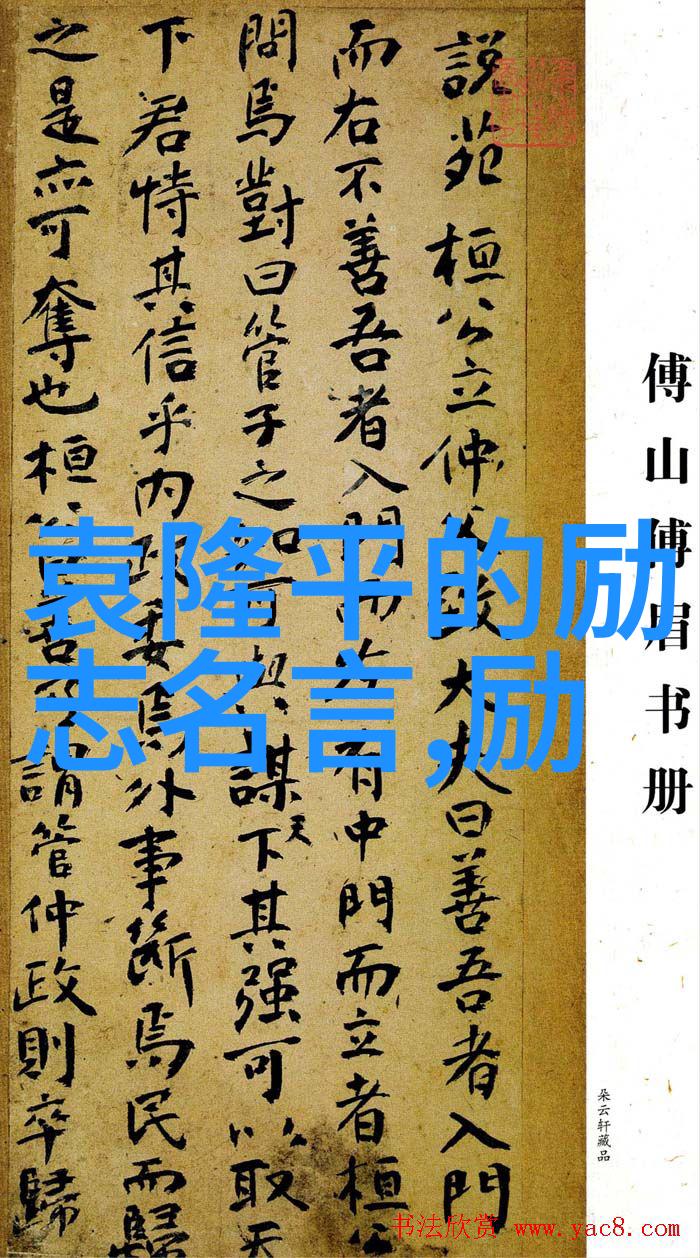 傅山傅眉书册
朵云轩藏品
說苑 桓公立仲父致大夫曰善吾者入門
而右不善吾者入門而左有中門而立者桓公
問焉對曰管子之知可與謀天下其强可以取天
下君恃其信乎內政委焉外事斷焉民而歸
之是亦可奪也桓公曰善謂管仲政則卒歸
袁隆平的励
志名言,励
书法欣赏 www.yac8.com